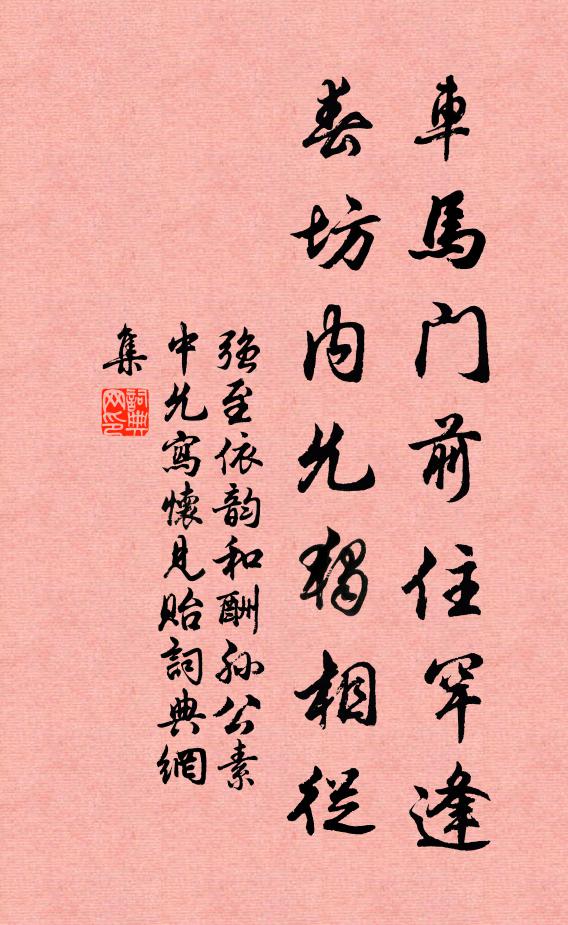 車馬門前住罕逢
春坊内允獨相從
強至依韵和酬孙公素
中允寫懷見貽詞典網
集
詞典
网印